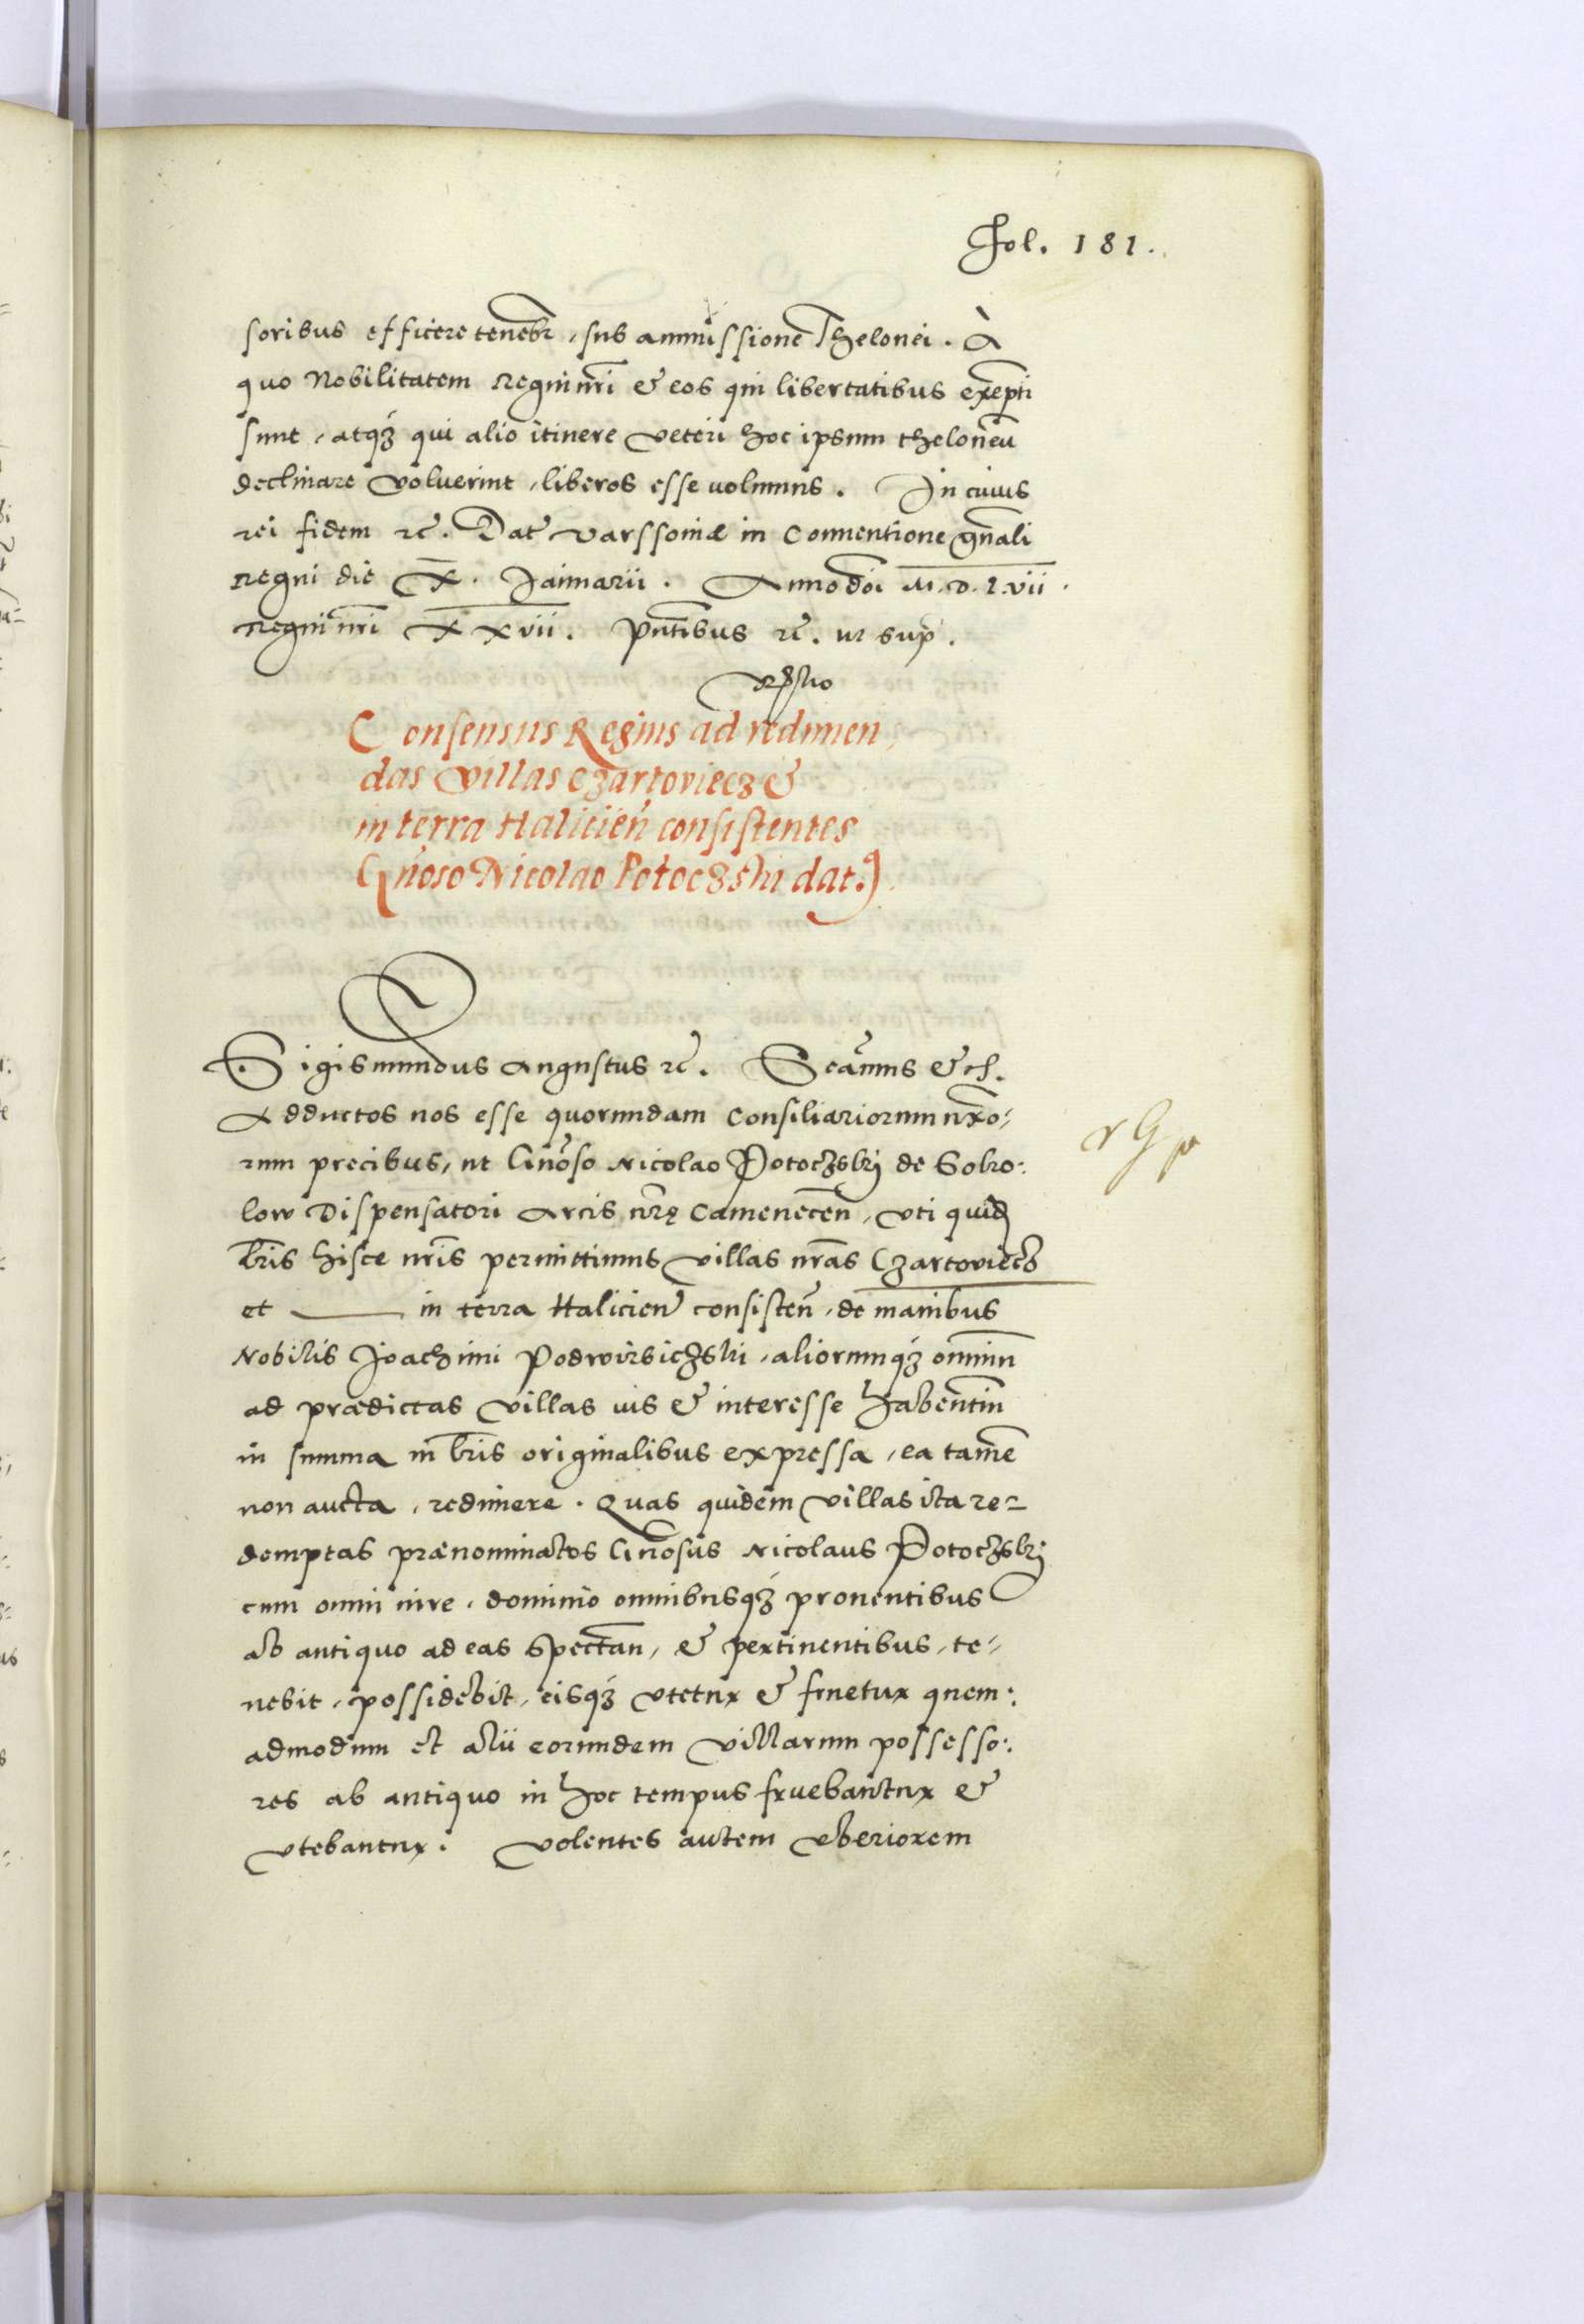 Fol. 181.
soribus efficere tenebr, sub ammissione Thelonei. A
quo Nobilitatem Regni nri & eos qui libertatibus exempti
sunt, atq3 qui alio itinere veteri hoc ipsum theloneu
declinare voluerint, liberos esse uolumus. In cuius
rei fidem rc. Dat varssoviæ in Conuentione gnali
Regni die X. Januarii. Anno doi M.D.L.vii.
Regni nri XXvii. Pntibus rc. ut sup.
Consensus Regius ad redimen,
das villas Czartoviecz &
in terra Halicien consistentes
Gnoso Nicolao Potoczski dat.
Sigismundus Augustus rc. Scamus & ch.
Adductos nos esse quorundam Consiliariorum nro,
rum precibus, ut Gnoso Nicolao Potoczski de Sokol:
low Dispensatori Arcis nrę Camenecen, vti quid
lris hisce nris permittimus villas nras Czartoviecz
et ——— in terra Halicien consisten, de manibus
Nobilis Joachimi Podwirsiczski, aliorumq3 omnium
ad prædictas villas ius & interesse habentium
in summa in lris originalibus expressa, ea tamen
non aucta, redimere. Quas quidem villas ita re=
demptas prænominatos Gnosus Nicolaus Potoczski
cum omni iure, dominio omnibusq3 prouentibus
ab antiquo ad eas spectan, & pertinentibus, te,
nebit, possidebit, eisq3 vtetur & fruetur quem:
admodum et alii eorundem villarum possesso:
res ab antiquo in hoc tempus fruebantur &
vtebantur. Volentes autem vberiorem